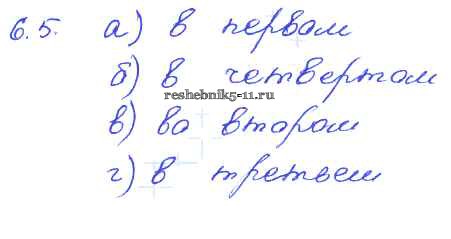 6.5. а) в первом
б) в четвертом
reshebnik5-11.ru
в) во втором
г) в третьем